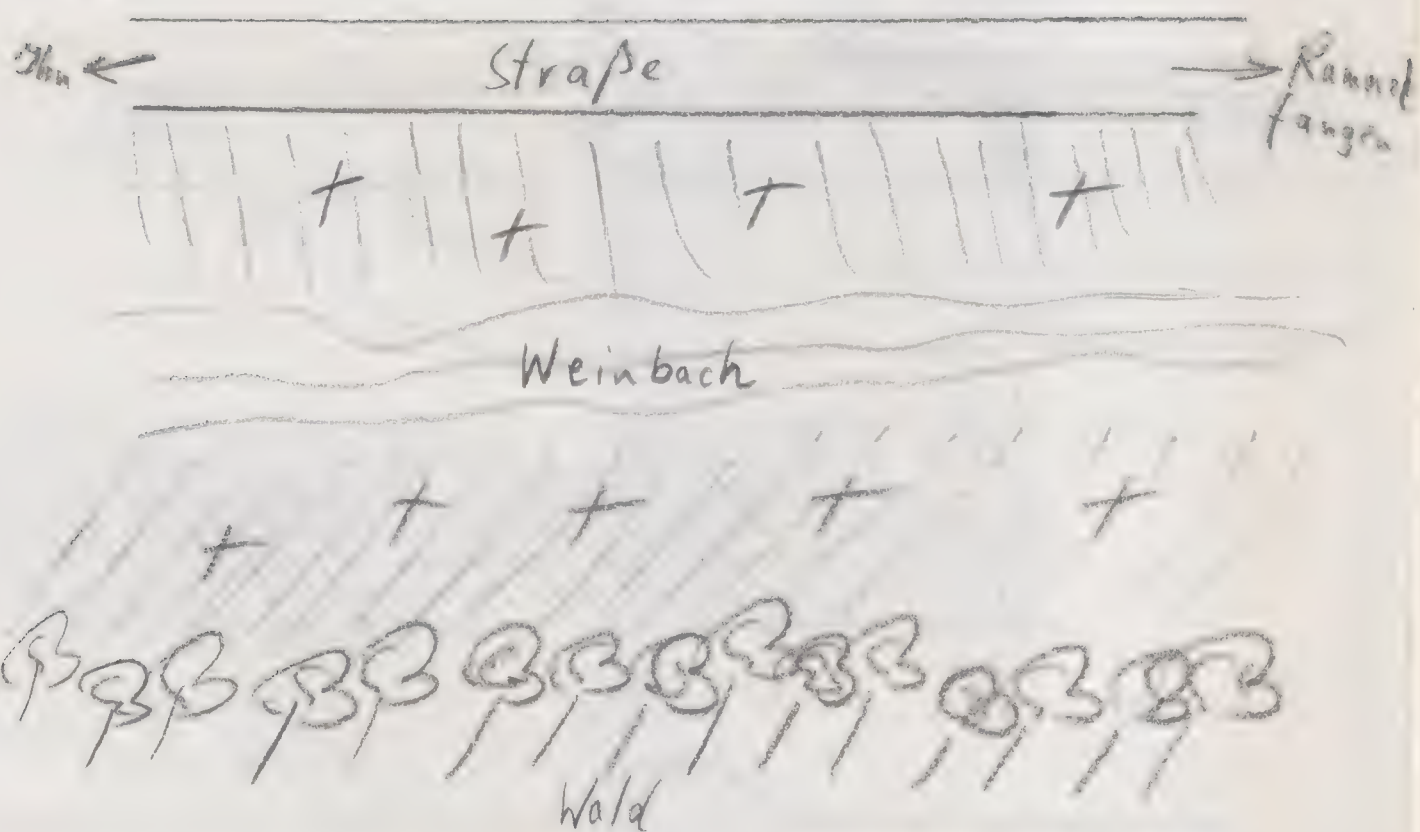 Ihn
Straße
Rammel
fangen
Weinbach
Wald